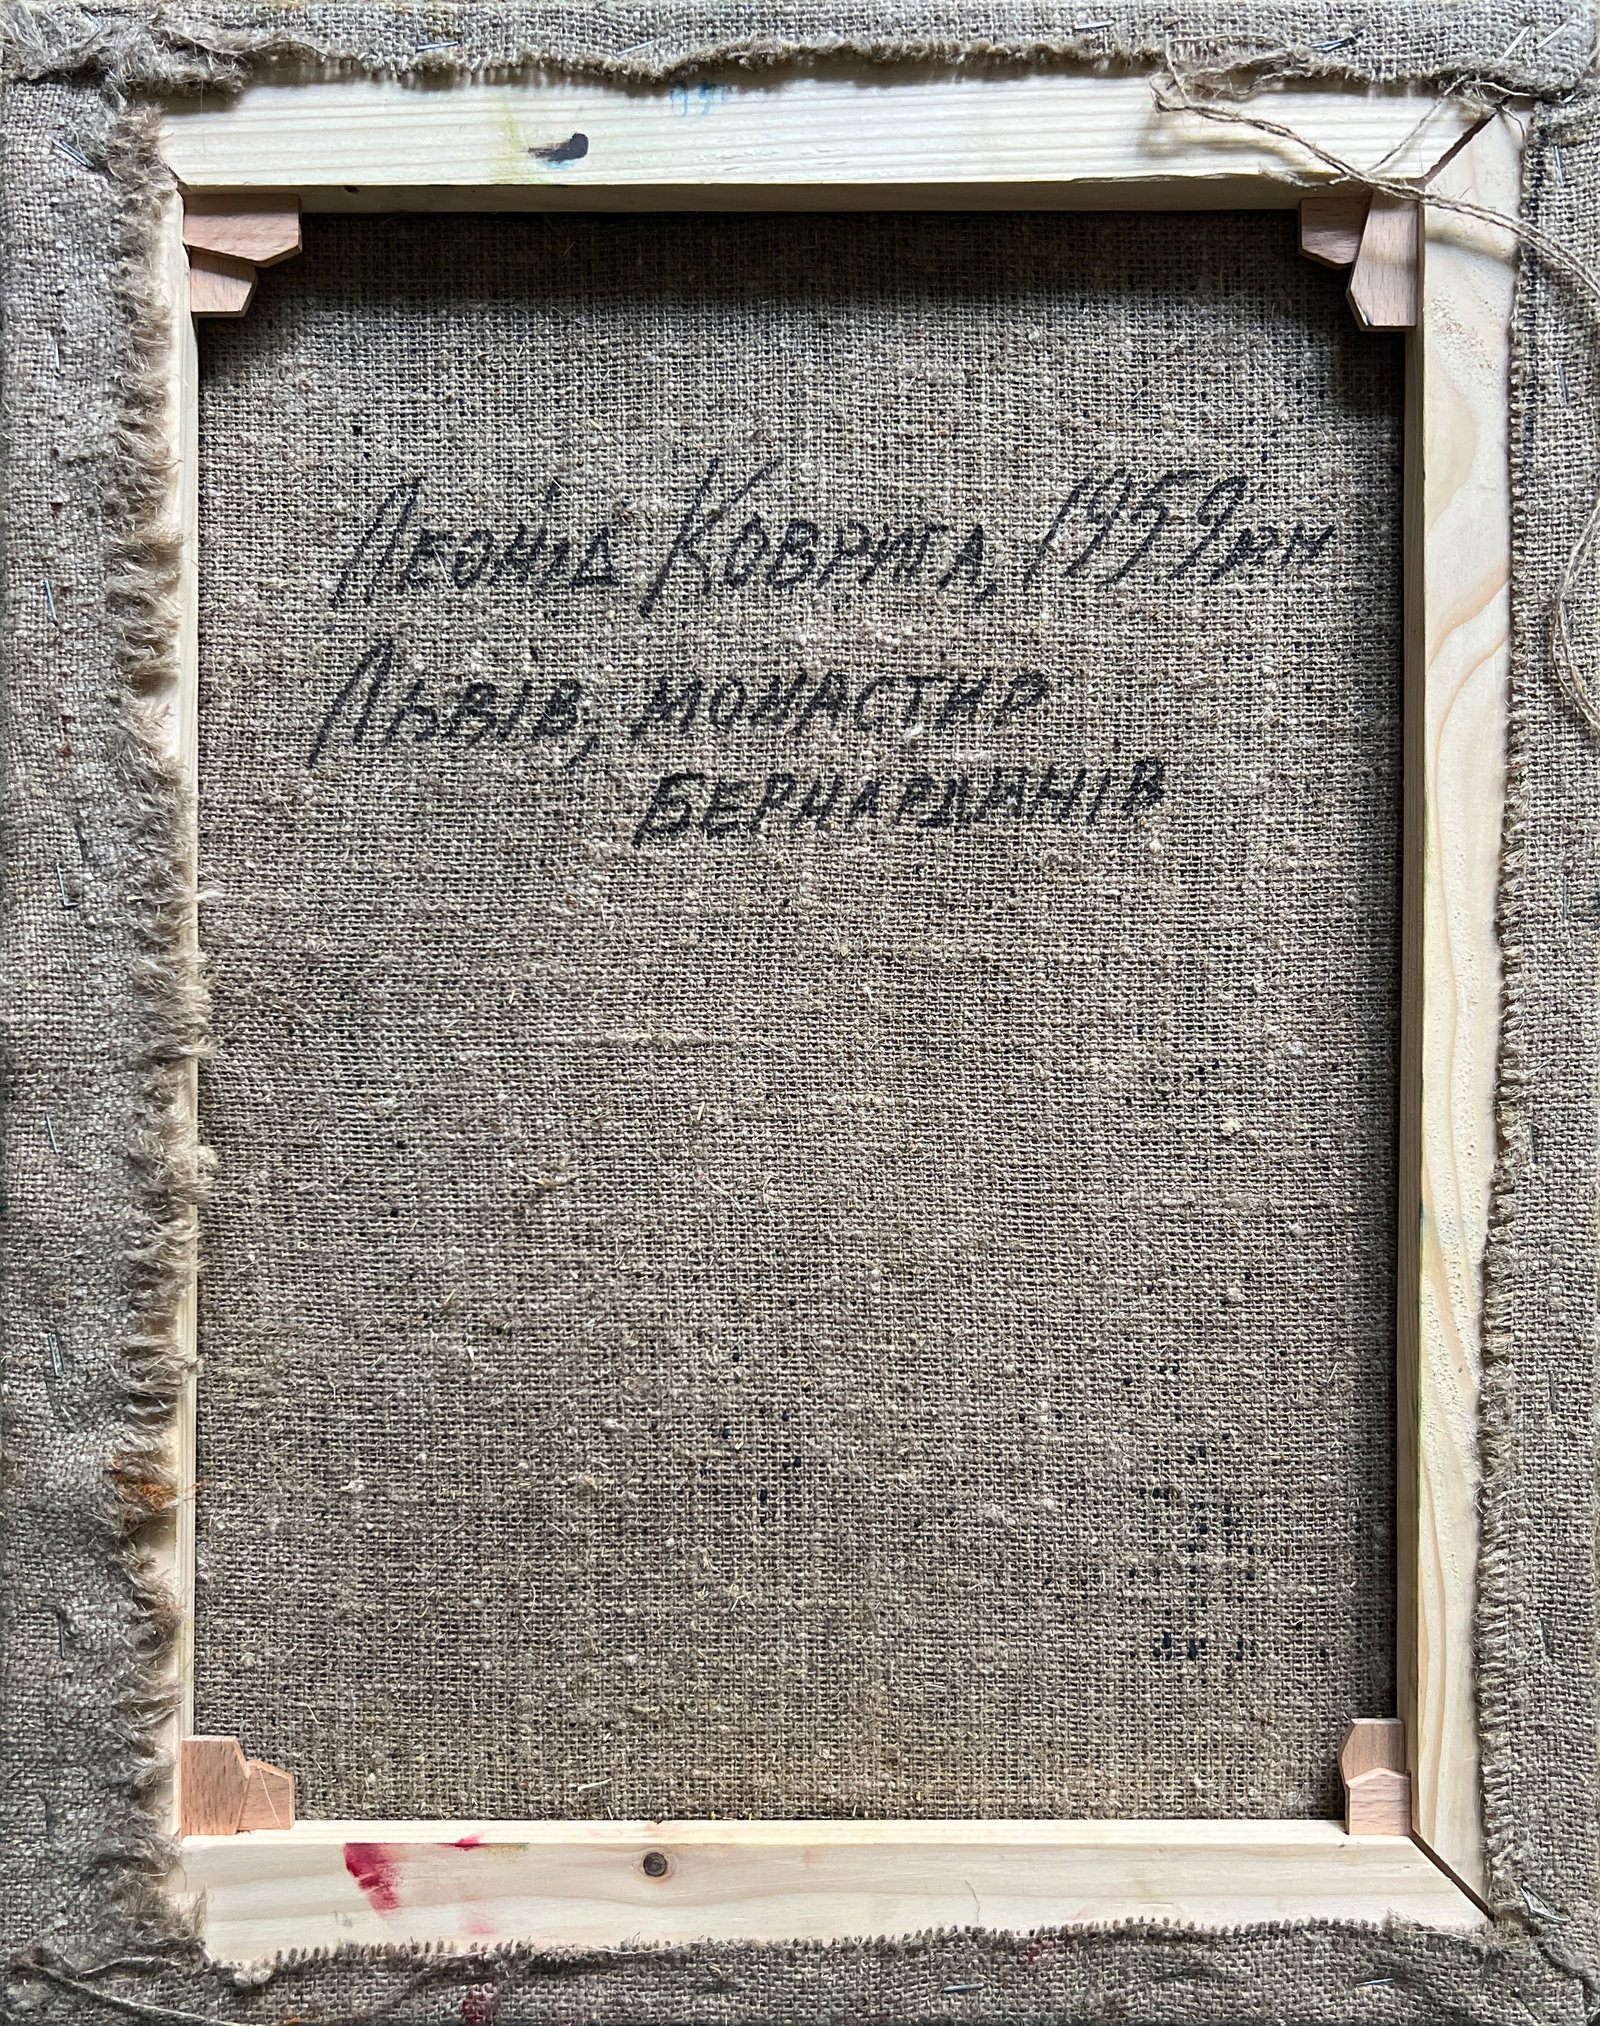 Леонід Коврига, 1959 рн
Львів, монастир
Бернардинів